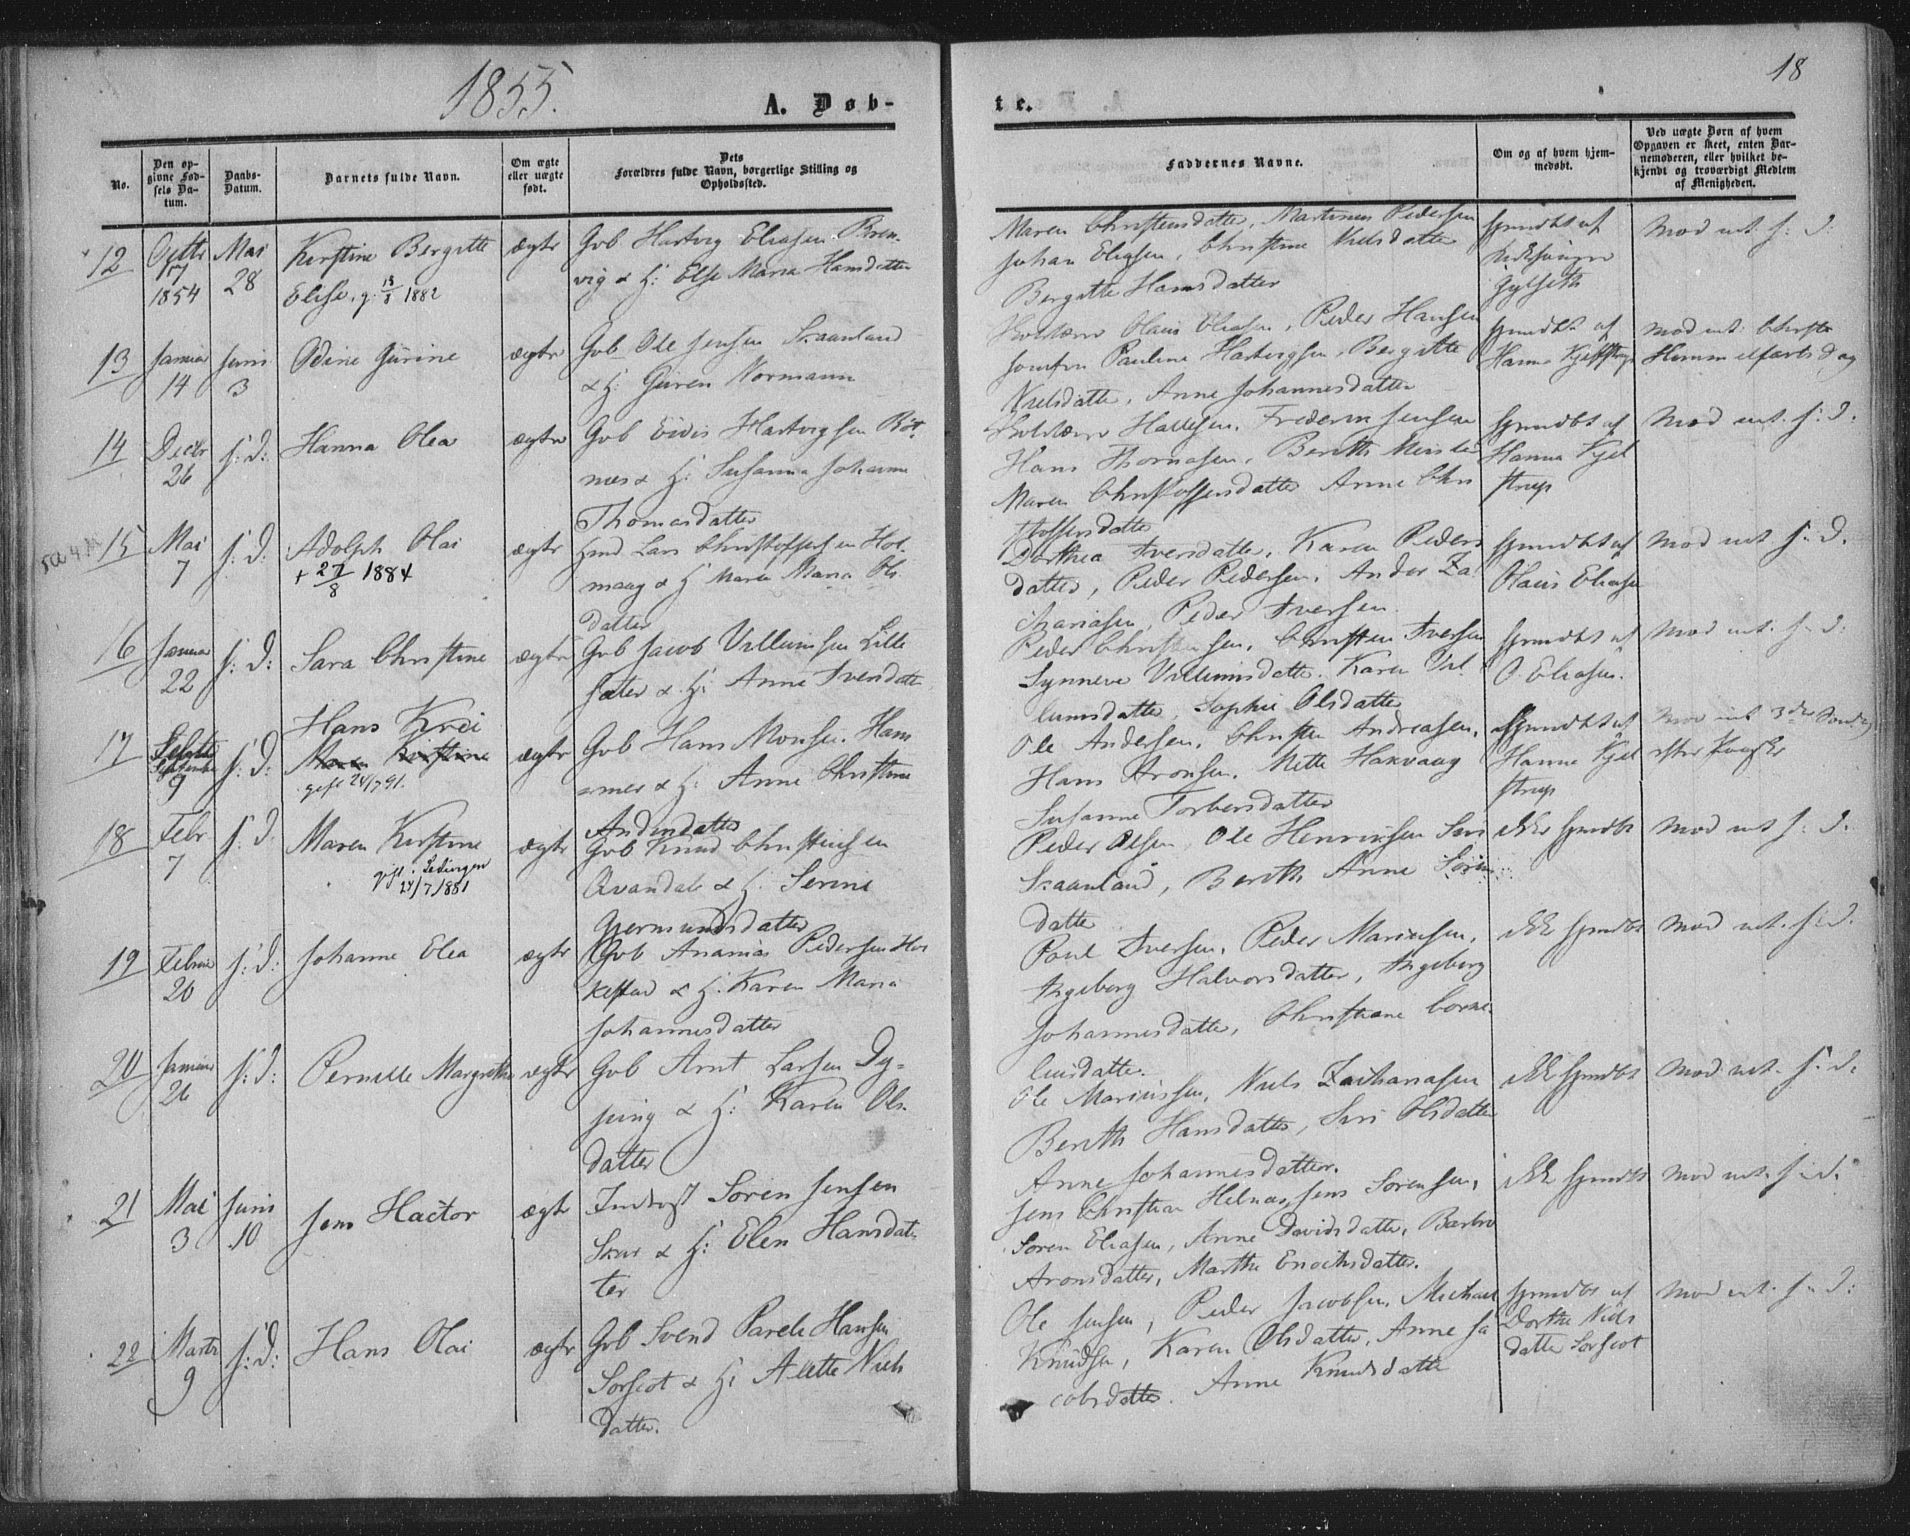 1855.
A. Døb-
te.
18
No.
Den op-
givne Fød-
sels Da-
tum.
Daabs-
Datum.
Barnets fulde Navn.
Om ægte
eller uægte
født.
Dets
Forældres fulde Navn, borgerlige Stilling og
Opholdssted.
Faddernes Navne.
Om og af hvem hjem-
medøbt.
Ved uægte Børn af hvem
Opgaven er skeet, enten Bar-
nemoderen, eller hvilket be-
kjendt og troværdigt Medlem
af Menigheden.
12
Octbr
17
1854
Mai
28
Kirstine Bergitte
Elise, g. 13/8 1882
ægte
Gvb Hartvig Eliasen
vig & H: Else Maria Hansdatter
Maren Christensdatter, Martinus Pedersen
Johan Eliasen, Christine Nielsdatter
Bergitte Hansdatter
hjmdbt af
Mod int. s: d:
13
Januar
14
Juni
3
Odine Gurine
ægte
Gvb Ole Jensen Skaanland
& H: Guren Normann
Olaus Eliasen, Peder Hansen
Jomfru Pauline Hartvigsen, Bergitte
Nielsdatter, Anne Johannesdatter
hjmdbt af
Hanna Kjelstrup
Mod int. Christi
Himmelfartsdag
14
Decbr
26
s: d:
Hanna Olea
ægte
Gvb Hartvigsen Bot-
nes & H: Susanna Johanna
Thomasdatter
Hallesen, Frederik Jensen
Hans Thomasen, Berith
Maren Christoffersdatter Anne Chri
stoffersdatter
hjmdbt af
Hanna Kjel
strup
Mod int. s: d.
15
Mai
7
s: d.
Adolph Olai
+ 27/8 1884
ægte
Hmd Lars Christoffersen Hol-
maag & H Maren Maria Ols
datter
Dorthea Iversdatter, Karen Peders
datter, Peder Pedersen, Ander Za
chariasen, Peder Iversen
hjmdbt af
Olaus Eliasen
Mod int s: d.
16
Januar
22
s: d:
Sara Christine
ægte
Gvb Jacob Villumsen Lille
sæter & H: Anne Iversdatter
Peder Christensen, Christen Iversen
Synneve Villumsdatter, Karen Vil
lumsdatter, Sophie Olsdatter
hjmdbt af
O Eliasen.
Mod int. s: d:
17
September
9
s: d:
Hans Krei
Maren Kirstine
gift 24/7 91.
ægte
Gvb Hans Monsen Ham
arnes & H: Anne Christine
Andersdatter
Ole Andersen, Christen Andreasen,
Hans Aronsen, Mette Hakvaag
Susanne Torbersdatter
hjmdbt af
Hanne Kjel
strup
Mod int 3die Søndag
efter Paaske
18
Febr
7
s: d.
Maren Kirstine
gift i Lødingen
24/7 1881
ægte
Gvb Knud Christensen
Qvandal & H: Serine
Gjermundsdatter
Peder Olsen, Ole Henriksen Siri
Skaanland, Berith Anne Sørens
datter
ikke hjmdbt
Mod int s: d.
19
Februar
20
s: d:
Johanne Elea
ægte
Gvb Ananias Pedersen Hor
kestad & H: Karen Maria
Johannesdatter
Poul Iversen, Peder Mariusen,
Ingeborg Halvorsdatter, Ingeborg
Johannesdatter, Christiane Corne-
liusdatter.
ikke hjmdbt
Mod int. s: d.
20
Januar
26
s: d:
Pernille Margrethe
ægte
Gvb Arnt Larsen Dy-
ping & H: Karen Ols-
datter
Ole Mariussen, Niels Zachariasen
Berith Hansdatter, Siri Olsdatter
Anne Johannesdatter.
ikke hjmdbt
Mod int. s: d:
21
Mai
3
Juni
10
Jens Hactor
ægte
Inderst Søren Jensen
& H: Elen Hansdat-
ter
Jens Christian Helnæs, Jens Sørensen,
Søren Eliasen, Anne Davidsdatter, Barbro
Aronsdatter, Marthe Enochsdatter.
ikke hjmdbt
Mod int. s: d:
22
Marts
9
s: d:
Hans Olai
ægte
Gvb Svend Pareli Hansen
& H: Alette Niels
datter.
Ole Jensen, Peder Jacobsen, Michael
Knudsen, Karen Olsdatter, Anne Ja
cobsdatter. Anne Knudsdatter
hjmdbt af
Dorthe Niels
datter
Mod int. s: d: